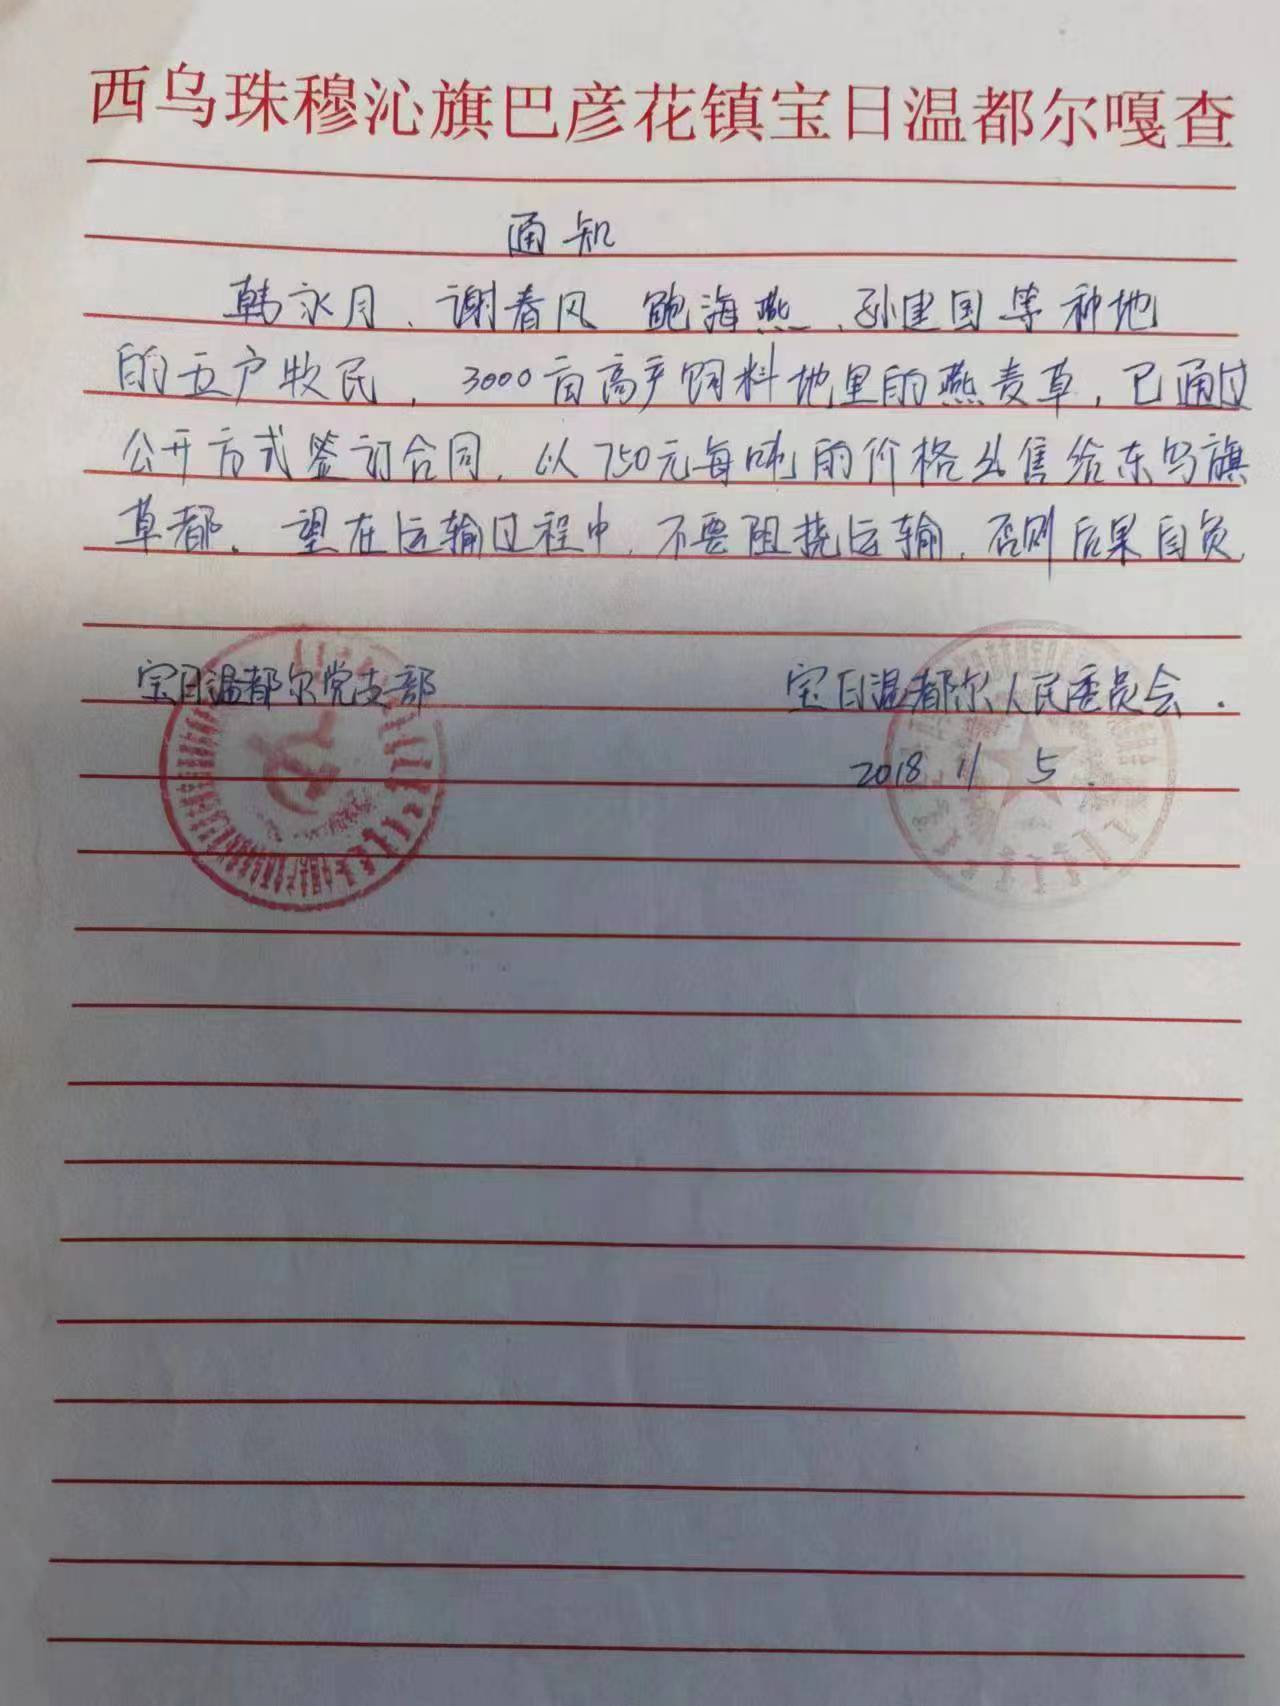 西乌珠穆沁旗巴彦花镇宝日温都尔嘎查
通知
韩永月、谢春风 鲍海燕、孙建国等种地
的五户牧民，3000亩高产饲料地里的燕麦草，已通过
公开方式签订合同，以750元每吨的价格出售给东乌旗
草都。望在运输过程中，不要阻挠运输，否则后果自负
宝日温都尔党支部
宝日温都尔人民委员会．
2018 11 5．